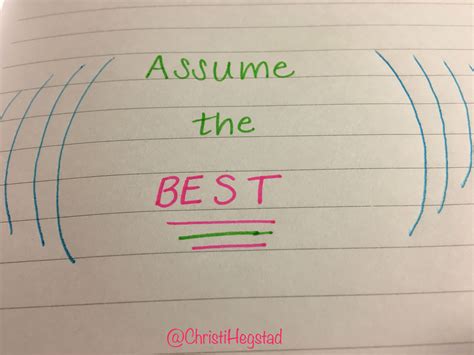 Assume
the
BEST
@ChristiHegstad